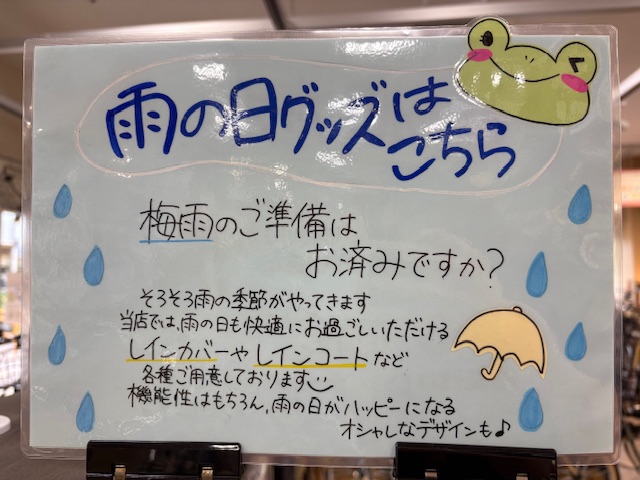 雨の日グッズは
こちら
梅雨のご準備は
お済みですか?
そろそろ雨の季節がやってきます
当店では、雨の日も快適にお過ごしいただける
レインカバーやレインコートなど
各種ご用意しております
機能性はもちろん、雨の日がハッピーになる
オシャレなデザインも♪